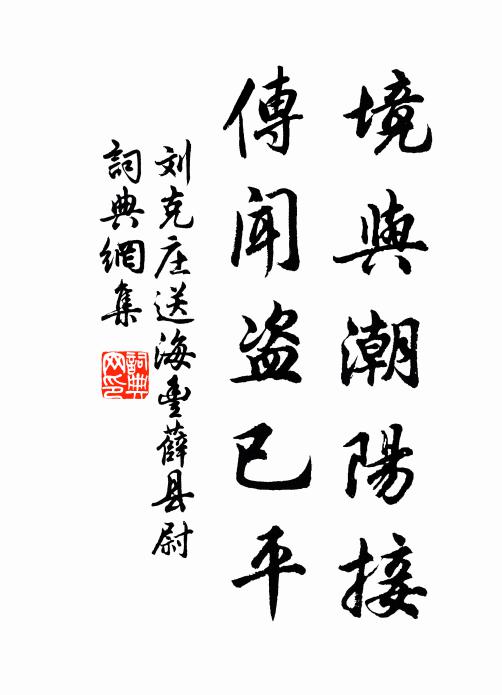 境與潮陽接
傳聞盗已平
刘克庄送海豊薛县尉
詞典網集
詞典
网印